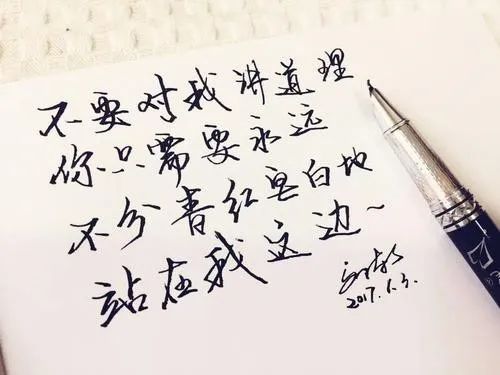 不要对我讲道理
你只需要永远
不分青红皂白地
站在我这边~
2017.6.3.